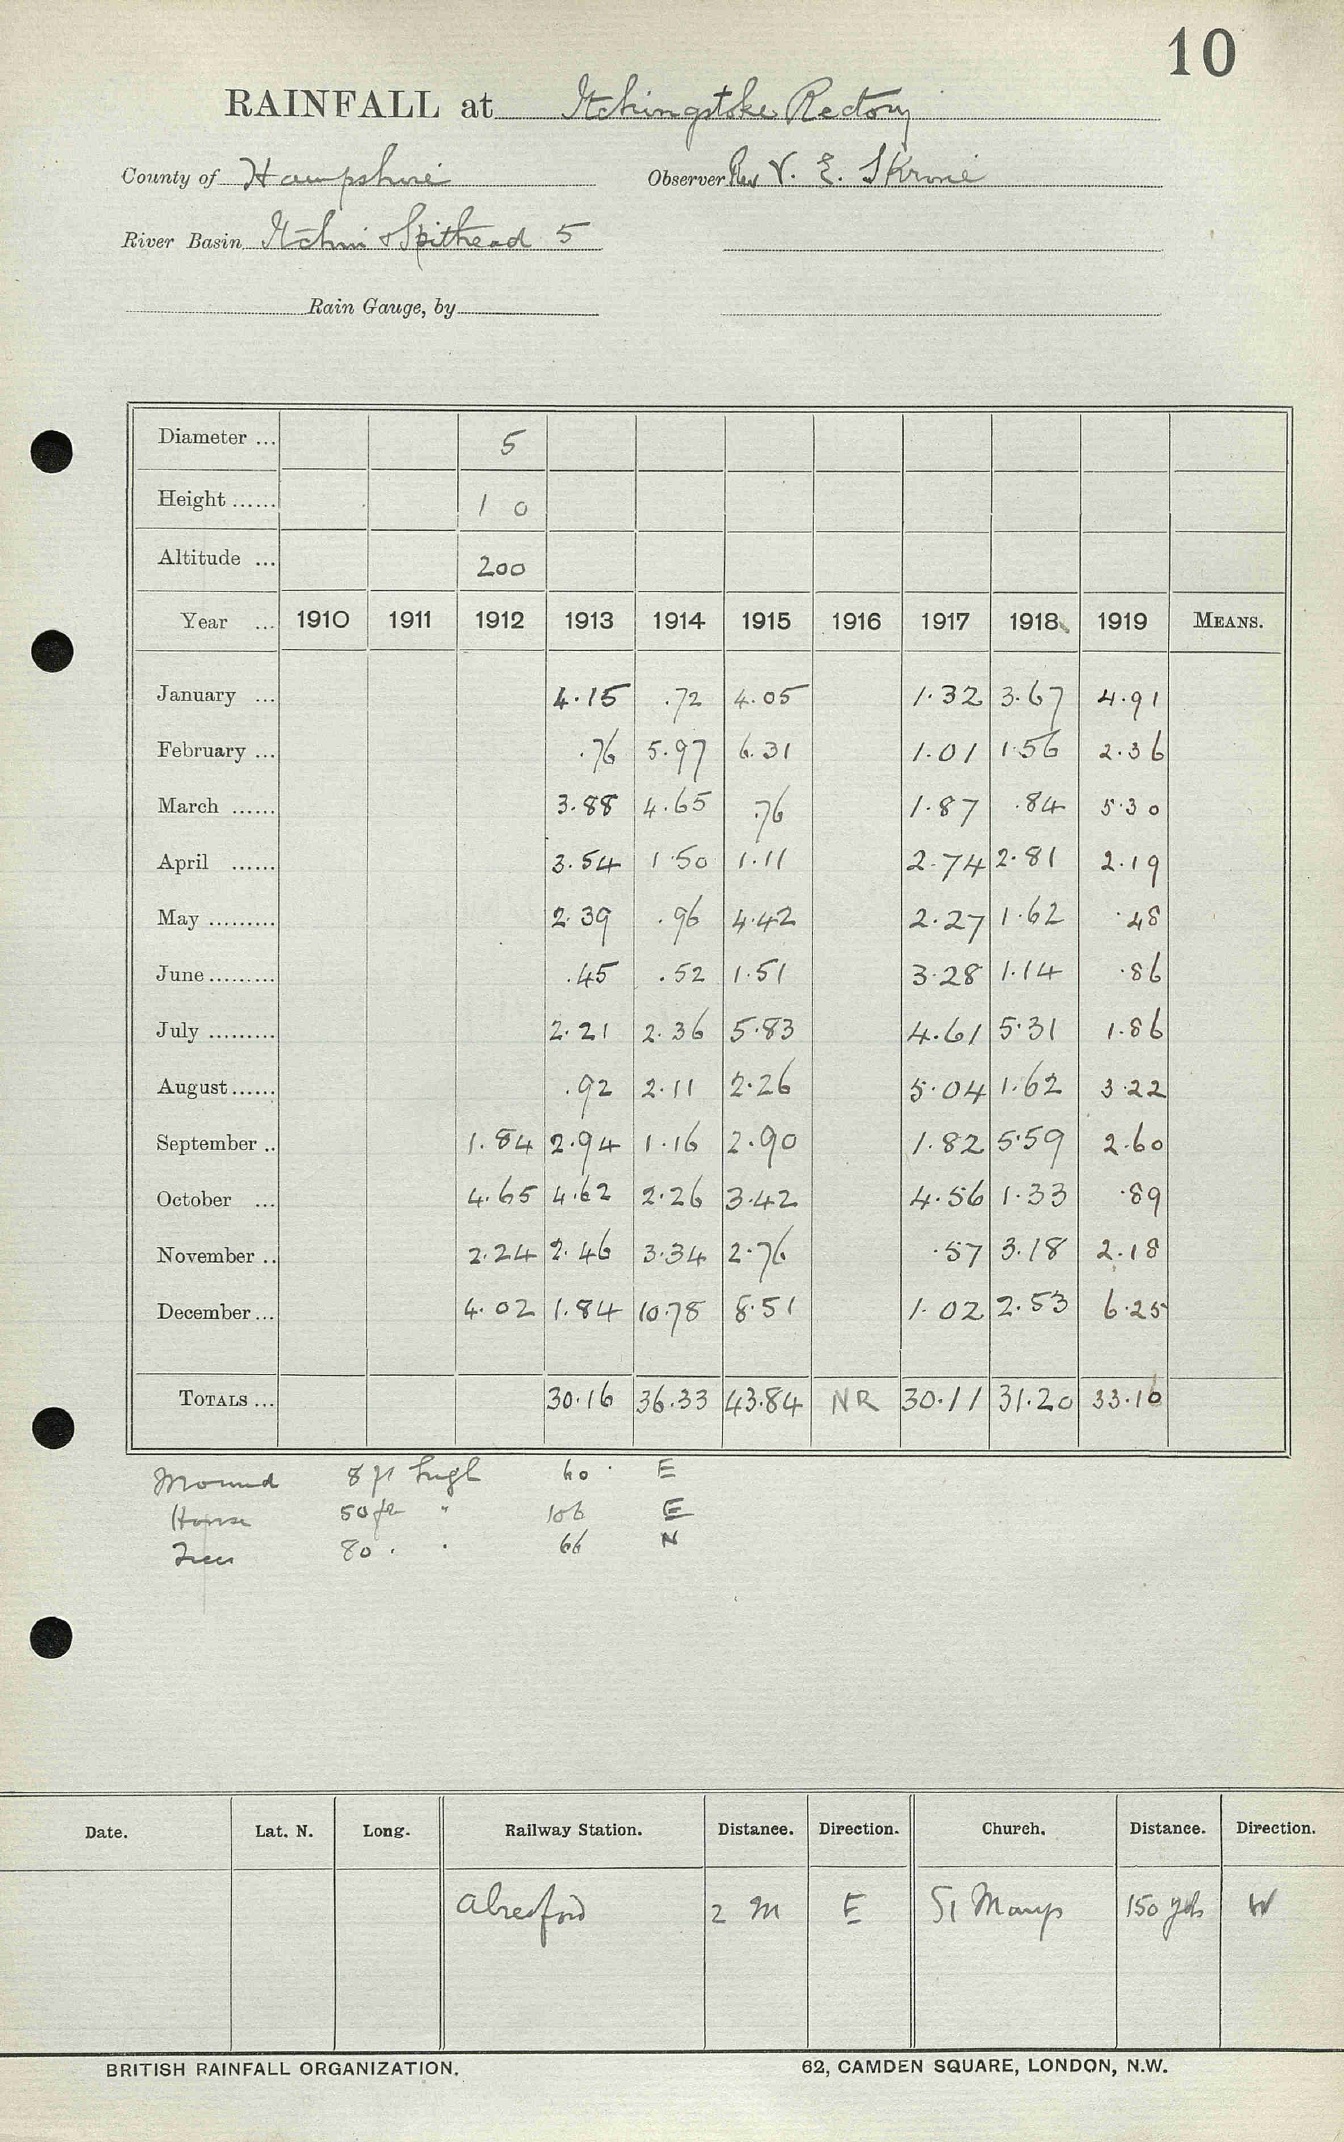 10
RAINFALL at Itchingstoke Rectory
County of Hampshire Observer Rev V. E. Skrine
River Basin Itchin & Spithead 5
Rain Gauge, by
Diameter ... 5
Height ...... 1 0
Altitude ... 200
Year ... 1910 1911 1912 1913 1914 1915 1916 1917 1918 1919 MEANS.
January ... 4.15 .72 4.05 1.32 3.67 4.91
February ... .76 5.97 6.31 1.01 1.56 2.36
March ...... 3.88 4.65 .76 1.87 .84 5.30
April ...... 3.54 1.50 1.11 2.74 2.81 2.19
May ......... 2.39 .96 4.42 2.27 1.62 .48
June ......... .45 .52 1.51 3.28 1.14 .86
July ......... 2.21 2.36 5.83 4.61 5.31 1.86
August ...... .92 2.11 2.26 5.04 1.62 3.22
September .. 1.84 2.94 1.16 2.90 1.82 5.59 2.60
October ... 4.65 4.62 2.26 3.42 4.56 1.33 .89
November .. 2.24 2.46 3.34 2.76 .57 3.18 2.18
December ... 4.02 1.84 10.78 8.51 1.02 2.53 6.25
TOTALS ... 30.16 36.33 43.84 NR 30.11 31.20 33.10
Mound 8 ft high 60 E
House 50 ft " 106 E
Trees 80 . . 66 N
Date. Lat. N. Long. Railway Station. Distance. Direction. Church. Distance. Direction.
Alresford 2 M E St Marys 150 yds W
BRITISH RAINFALL ORGANIZATION. 62, CAMDEN SQUARE, LONDON, N.W.